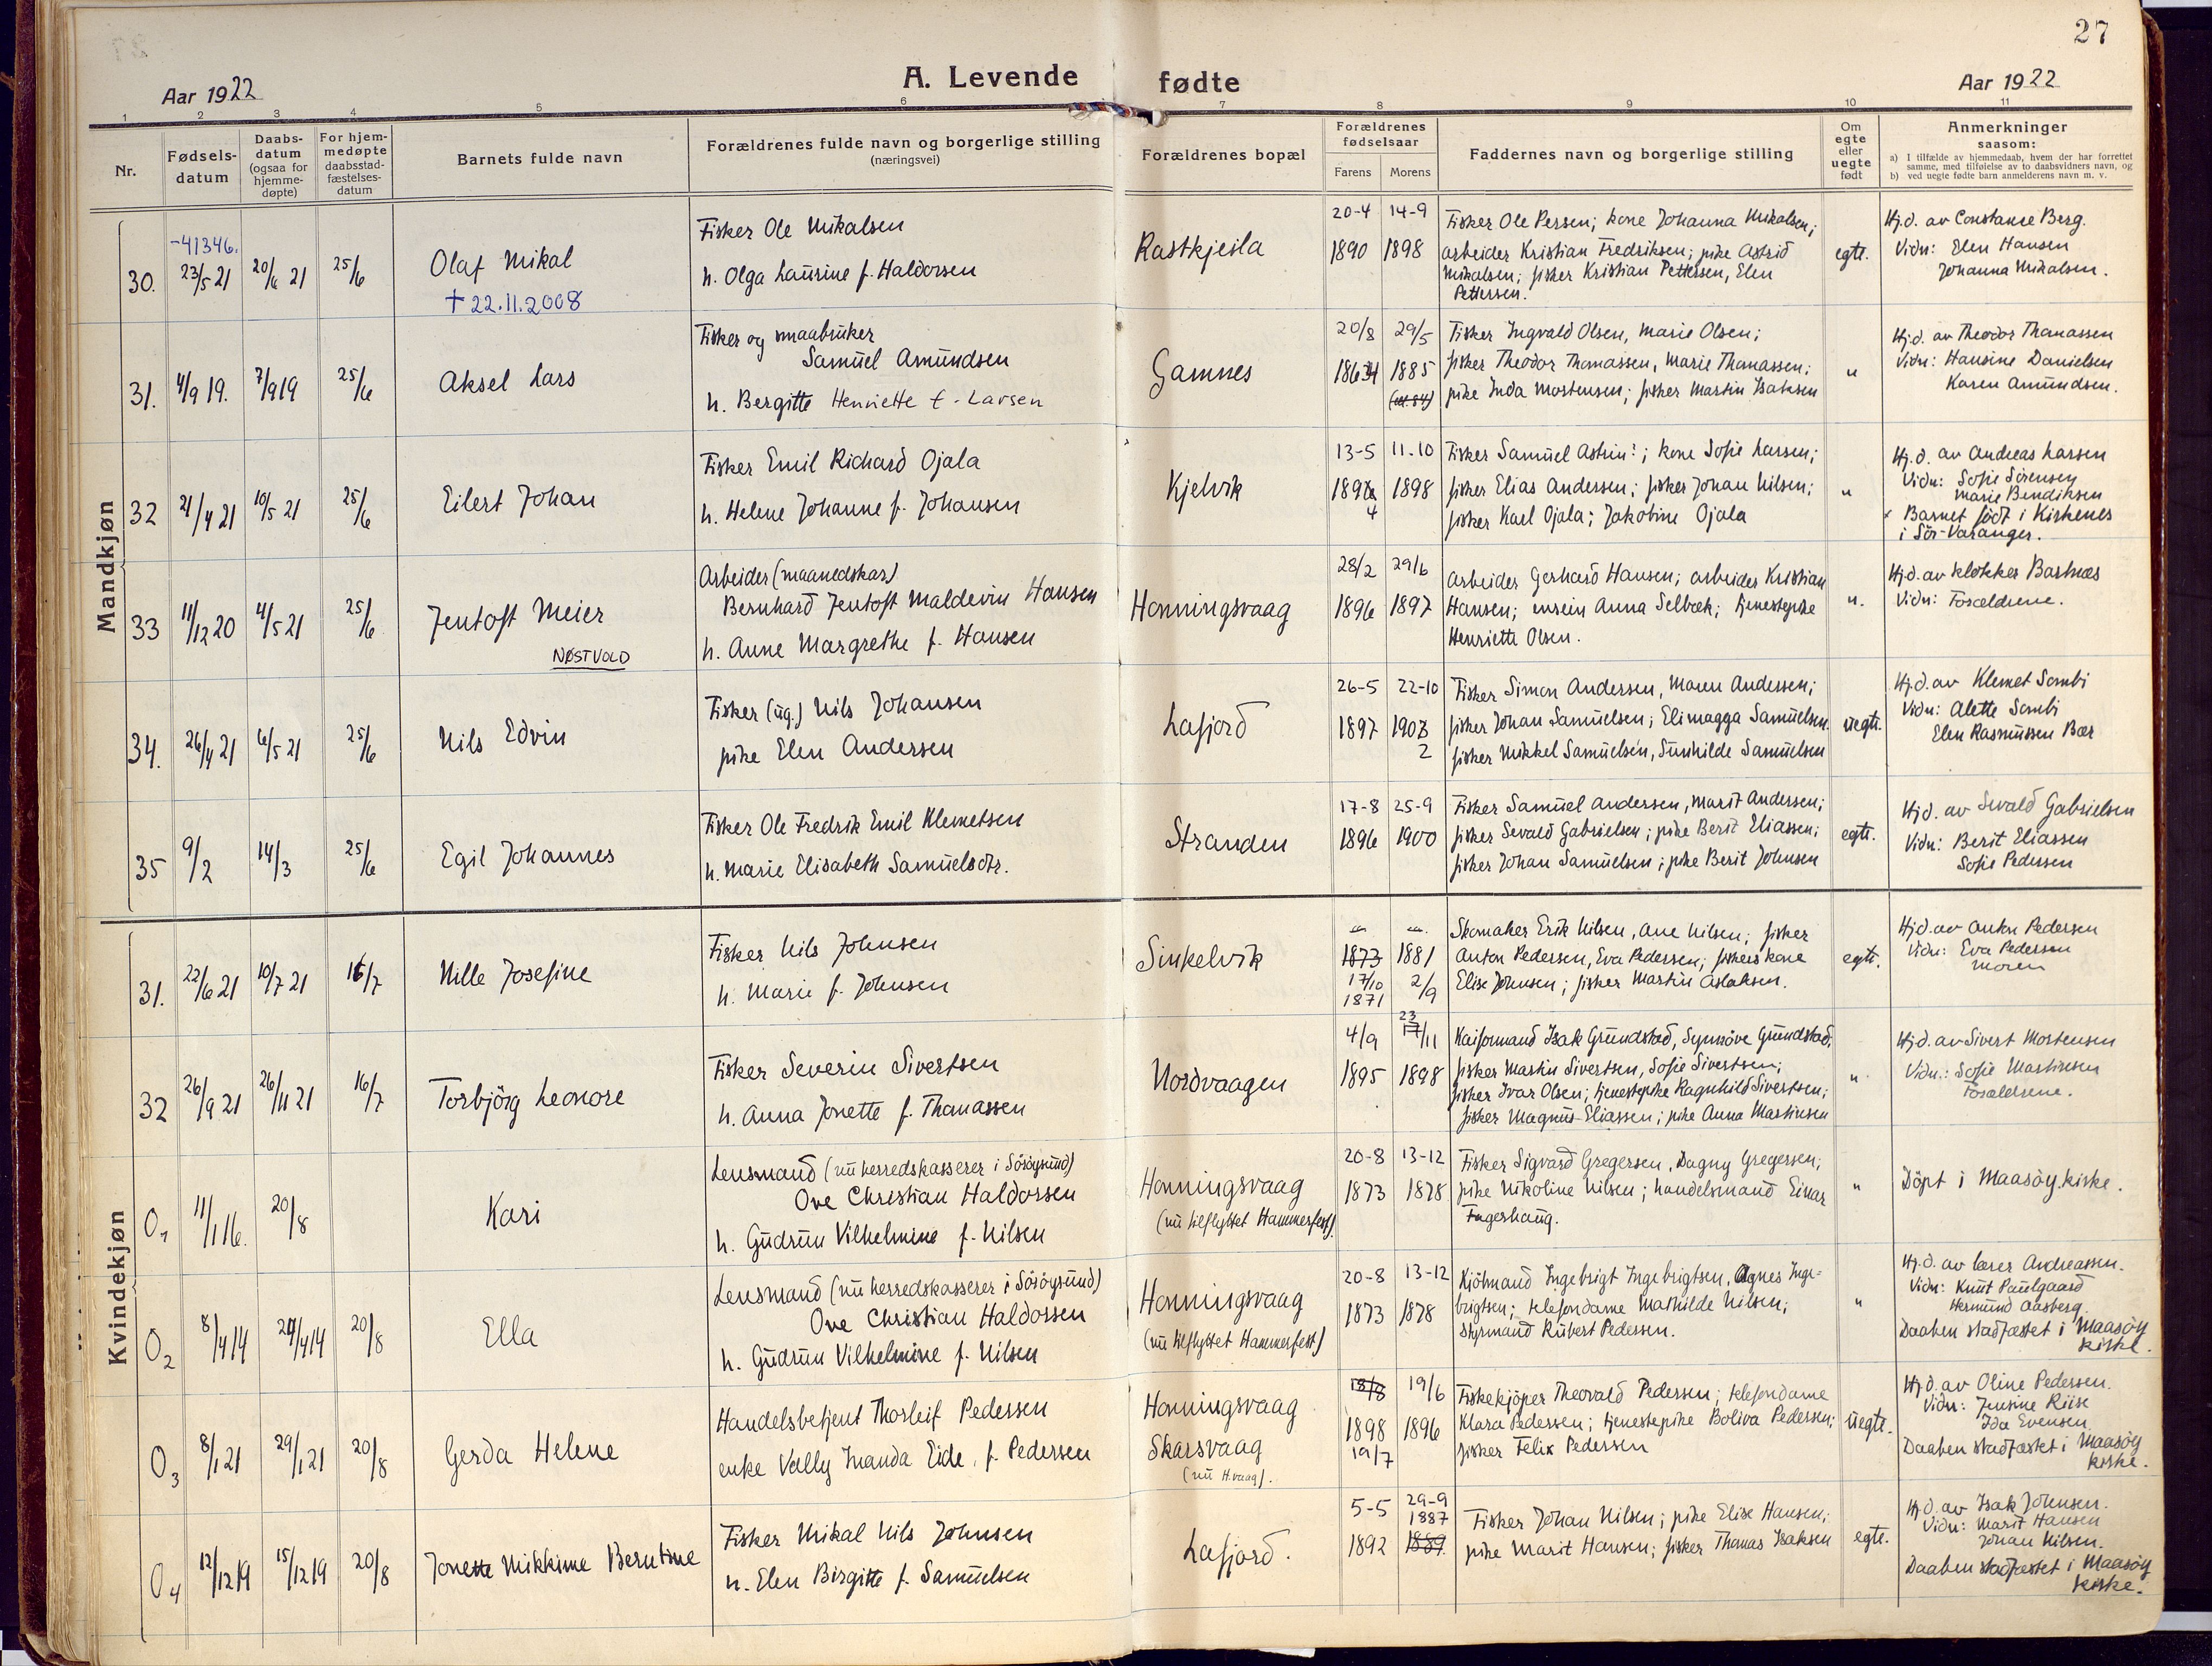 27
Aar 1922
A. Levende fødte
Aar 1922
1 2 3 4 5 6 7 8 9 10 11
Nr.
Fødsels-
datum
Daabs-
datum
(ogsaa for
hjemme-
døpte)
For hjem-
medøpte
daabsstad-
fæstelses-
datum
Barnets fulde navn
Forældrenes fulde navn og borgerlige stilling
(næringsvei)
Forældrenes bopæl
Forældrenes
fødselsaar
Farens Morens
Faddernes navn og borgerlige stilling
Om
egte
eller
uegte
født
Anmerkninger
saasom:
a) I tilfælde av hjemmedaab, hvem der har forrettet
samme, med tilføielse av to daabsvidners navn, og
b) ved uegte fødte barn anmelderens navn m. v.
Mandkjøn
30. -41346. 23/5 21 20/6 21 25/6
Olaf Mikal
+ 22.11.2008
Fisker Ole Mikalsen
h. Olga Laurine f. Haldorsen
20-4 14-9
1890 1898
Fisker Ole Persen; kone Johanna Mikalsen;
arbeider Kristian Fredriksen; pike Astrid
Mikalsen; fisker Kristian Pettersen, Elen
Pettersen.
egte.
Hj.d. av Constanse Berg.
Vidn: Elen Hansen
Johanna Mikalsen.
31. 4/9 19. 7/9 19 25/6
Aksel Lars
Fisker og smaabruker
Samuel Amundsen
h. Bergitte Henriette f. Larsen
Gamnes
20/8 29/5
1885
Fisker Ingvald Olsen, Marie Olsen;
fisker Theodor Thomassen, Marie Thomassen;
pike Inda Mortensen; fisker Martin Isaksen
"
Hj.d. av Theodor Thomassen
Vidn: Hansine Danielsen
Karen Amundsen.
32 21/4 21 10/5 21 25/6
Eilert Johan
Fisker Emil Richard Ojala
h. Helene Johanne f. Johansen
Kjelvik
13-5 11-10
1898
4
Fisker Samuel Astrin?; kone Sofie Larsen;
fisker Elias Andersen; fisker Johan Nilsen;
fisker Karl Ojala; Jakobine Ojala
"
Hj.d. av Andreas Larsen
Vidn: Sofie Sörensen
Marie Bendiksen
x Barnet född i Kirkenes
i Sör-Varanger.
33 11/12 20 4/5 21 25/6
Jentoft Meier
NØSTVOLD
Arbeider (maanedskar)
Bernhard Jentoft Maldevin Hansen
h. Anne Margrethe f. Hansen
Honningsvaag
28/2 29/6
1896 1897
Arbeider Gerhard Hansen; arbeider Kristian
Hansen; Anna Selbæk; tjenestepike
Henriette Olsen.
"
Hj.d. av klokker Barnæs
Vidn: Forældrene.
34. 26/4 21 6/5 21 25/6
Nils Edvin
Fisker (ug.) Nils Johansen
pike Elen Andersen
Lafjord
26-5 22-10
1897 1903
2
Fisker Simon Andersen, Maren Andersen;
fisker Johan Samuelsen; Elimagga Samuelsen.
fisker Mikkel Samuelsen, Sunhilde Samuelsen
uegte.
Hj.d. av Klemet Sombi
Vidn: Alette Sombi
Elen Rasmussen Bær
35 9/2 14/3 25/6
Egil Johannes
Fisker Ole Fredrik Emil Klemetsen
h. Marie Elisabeth Samuelsdtr.
Stranden
17-8 25-9
1896 1900
Fisker Samuel Andersen, Marit Andersen;
fisker Sevald Gabrielsen; pike Berit Eliassen;
fisker Johan Samuelsen; pike Berit Johnsen
egte.
Hj.d. av Sevald Gabrielsen
Vidn: Berit Eliassen
Sofie Pedersen
Kvindekjøn
31. 22/6 21 10/7 21 16/7
Nille Josefine
Fisker Nils Johnsen
h. Marie f. Johnsen
Sinkelvik
1873 1881
17/10 2/9
1871
Skomaker Erik Nilsen, Ane Nilsen; fisker
Anton Pedersen, Eva Pedersen; fiskers kone
Elise Johnsen; fisker Martin Aslaksen.
egte.
Hj.d. av Anton Pedersen
Vidn: Eva Pedersen
Moren
32 26/9 21 26/11 21 16/7
Torbjörg Leonore
Fisker Severin Sivertsen
h. Anna Jonette f. Thomassen
Nordvaagen
4/9 23 17/11
1895 1898
Kaiformand Isak Grundstad, Synnöve Grundstad;
fisker Martin Sivertsen, Sofie Sivertsen;
fisker Ivar Olsen; tjenestepike Ragnhild Sivertsen;
fisker Magnus Eliassen; pike Anna Martinsen
"
Hj.d. av Sivert Mortensen
Vidn.: Sofie Martinsen
Forældrene.
01 11/1 16. 20/8
Kari
Lensmand (nu herredskasserer i Söröysund)
Ove Christian Haldorsen
h. Gudrun Vilhelmine f. Nilsen
Honningsvaag
(nu tilflyttet Hammerfest).
20-8 13-12
1873 1878
Fisker Sigvard Gregersen, Dagny Gregersen;
pike Nikoline Nilsen; handelsmand Einar
Fagerhaug.
"
Döpt i Maasöy kirke.
02 8/4 14 24/4 14 20/8
Ella
Lensmand (nu herredskasserer i Söröysund)
Ove Christian Haldorsen
h. Gudrun Vilhelmine f. Nilsen
Honningsvaag
(nu tilflyttet Hammerfest)
20-8 13-12
1873 1878
Kjöbmand Ingebrigt Ingebrigtsen, Agnes Inge-
brigtsen; telefondame Mathilde Nilsen;
styrmand Rubert Pedersen.
"
Hj.d. av lærer Andreassen.
Vidn: Knut Paulgaard
Hermund Aasberg.
Daaben stadfæstet i Maasöy
kirke.
03 8/1 21 29/1 21 20/8
Gerda Helene
Handelsbetjent Thorleif Pedersen
enke Vally Inanda Eide, f. Pedersen
Honningsvaag
Skarsvaag
(nu H.vaag).
18/8 19/6
1898 1896
19/7
Fiskekjöper Theovald Pedersen; telefondame
Klara Pedersen; tjenestepike Boliva Pedersen;
fisker Felix Pedersen
uegte.
Hj.d. av Oline Pedersen.
Vidn: Jensine Riise
Ida Evensen.
Daaben stadfæstet i Maasöy
kirke.
04 12/12 19 15/12 19 20/8
Jonette Mikkine Berntine
Fisker Mikal Nils Johnsen
h. Elen Birgitte f. Samuelsen
Lafjord.
5-5 29-9
1887
1892 1889
Fisker Johan Nilsen; pike Elise Hansen;
pike Marit Hansen; fisker Thomas Isaksen
egte.
Hj.d. av Isak Johnsen.
Vidn: Marit Hansen
Johan Nilsen.
Daaben stadfæstet i Maasöy
kirke.